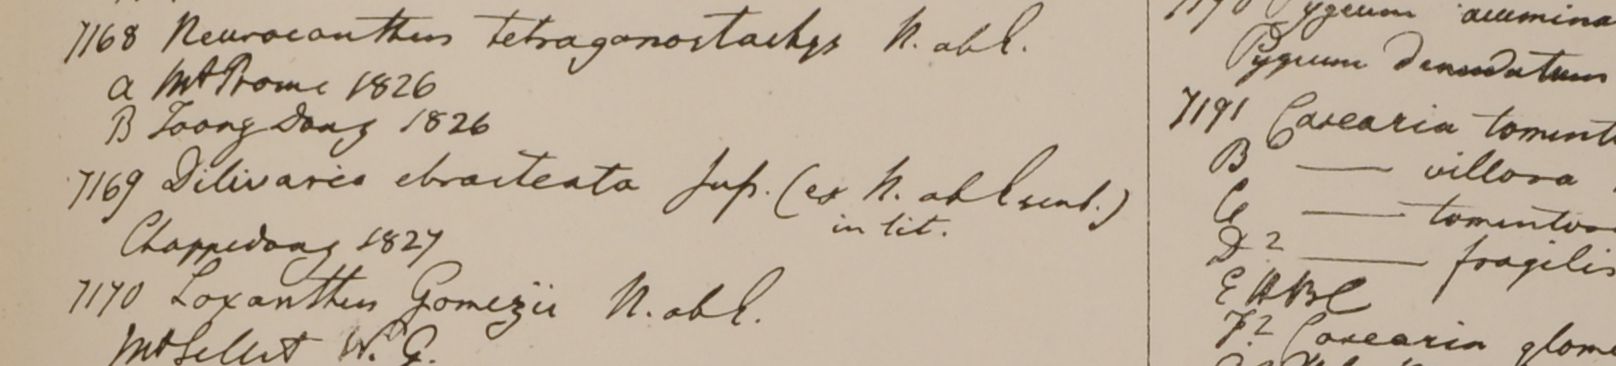 7168 Neuracanthus tetragonostachys N. ab E.
a Mt Prome 1826
B Toong Dong 1826
7169 Dilivaria ebracteata Juss. (ex N. ab Esenb.)
in lit.
Chappedong 1827
7170 Loxanthus Gomezii N. ab E.
Mt Sillet W. G.
Pygeum acumina
Pygeum denudatum
7191 Casearia toment
B —— villosa
C —— tomentos
D 2 —— fragilis
E HBC
F. 2 Casearia glome